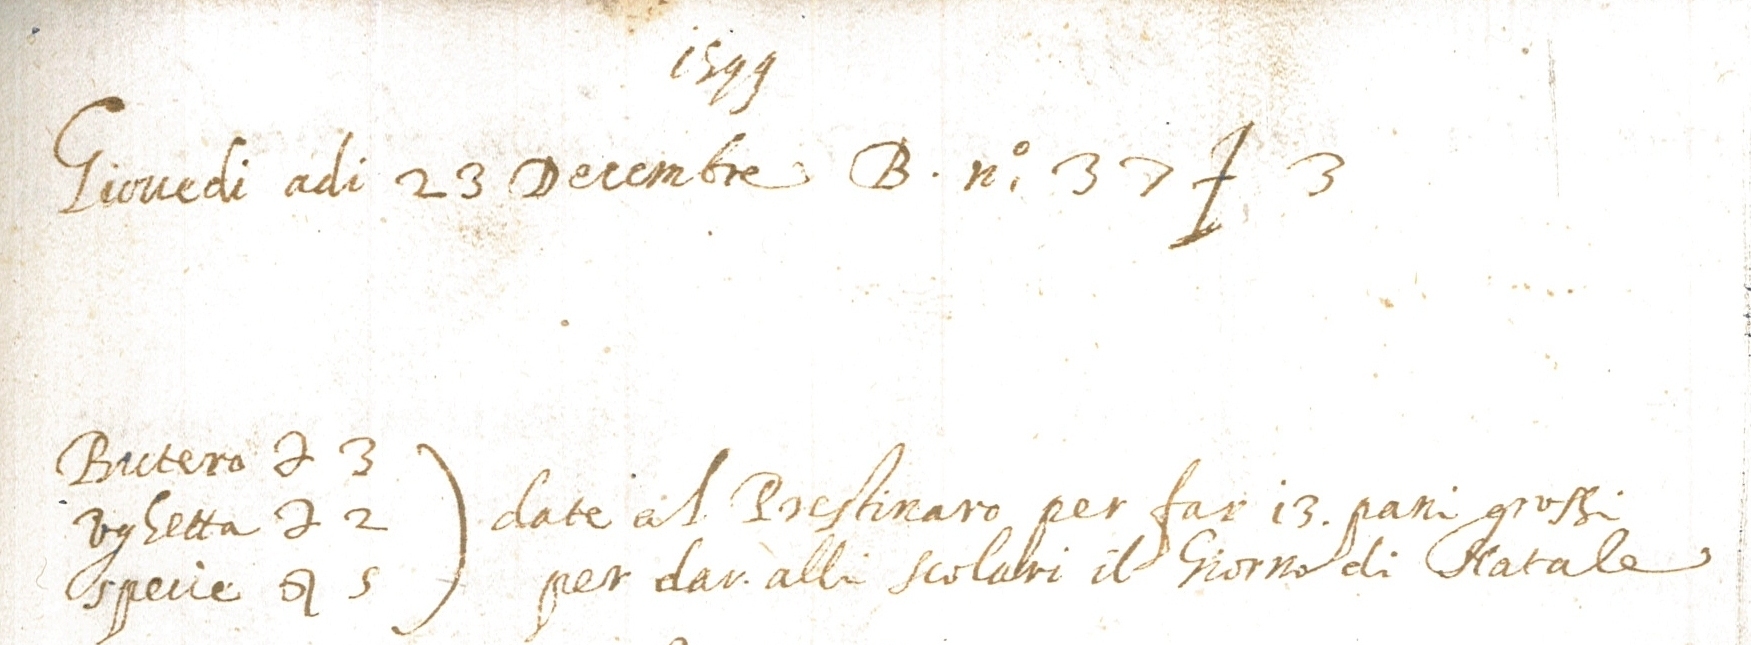 1599
Giouedi adi 23 Decembre B. n.° 37 f 3
Butero 3
vghetta 2
specie 5
date al Prestinaro per far 13. pani grossi
per dar alli scolari il Giorno di Natale